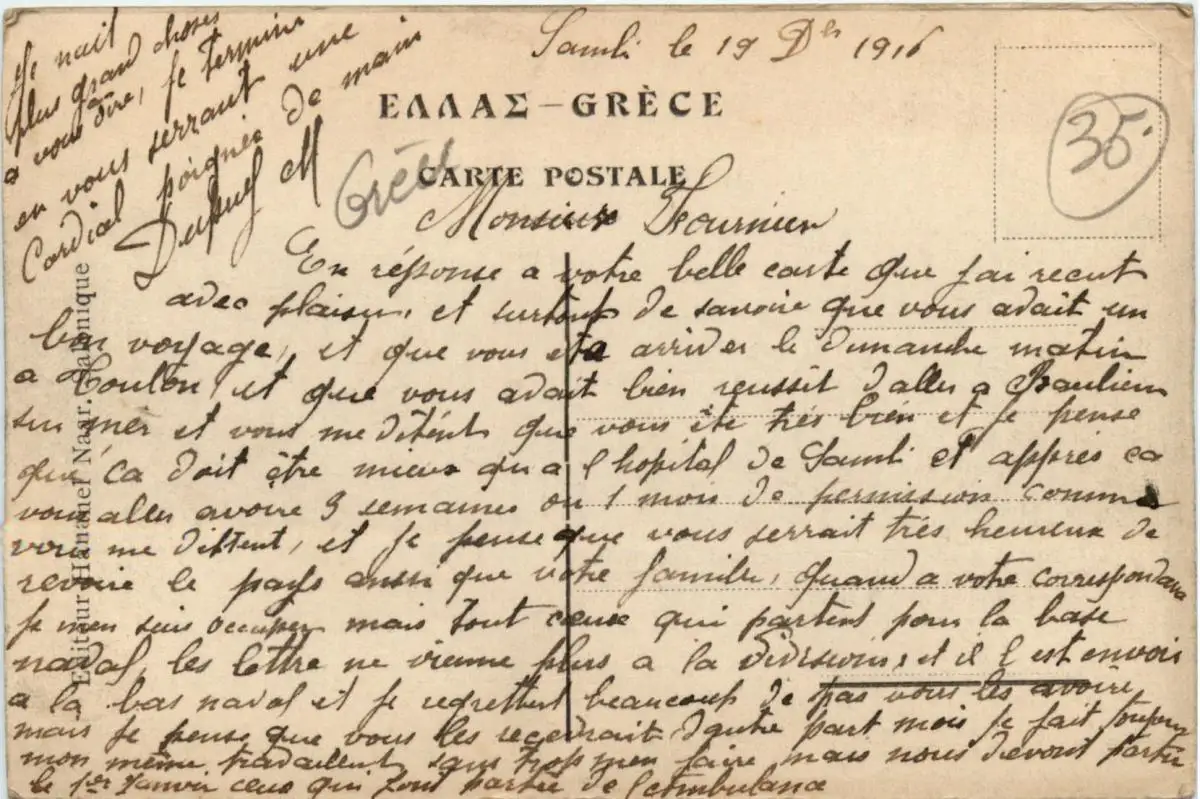 Samli le 19 Dbr 1916
ΕΛΛΑΣ – GRÈCE
CARTE POSTALE
Grèce
35
Monsieur Fournier
En réponse a votre belle carte que jai recut
avec plaisir, et surtout de savoire que vous avait un
bon voyage, et que vous ete arriver le dimanche matin
a Toulon, et que vous avait bien reussit daller a Baulieu
sur mer et vous me ditént que vous ete trés bien et je pense
que ca doit être mieux qu a l hopital de Samli et apprés ca
vous aller avoire 3 semaines ou 1 mois de permission comme
vous me dittent, et je pense que vous serrait trés heureux de
revoire le pays aussi que votre famille, quand a votre correspondance
je men suis occuper mais tout ceux qui partent pour la base
naval, les lettre ne vienne plus a la Division, et il l est envois
a la bas naval et je regrettent beaucoup de pas vous les avoire
mais je pense que vous les recevrait dautre part mois je fait toujours
mon même travaillent sans trop men faire mais nous devont partir
le 1er Janvir ceux qui font partie de l ambulance
Je nait
plus grand choses
a vous dire, je termine
en vous serrant une
Cordial poignée de main
Dupuy M
Editeur Hananel Naar. Salonique